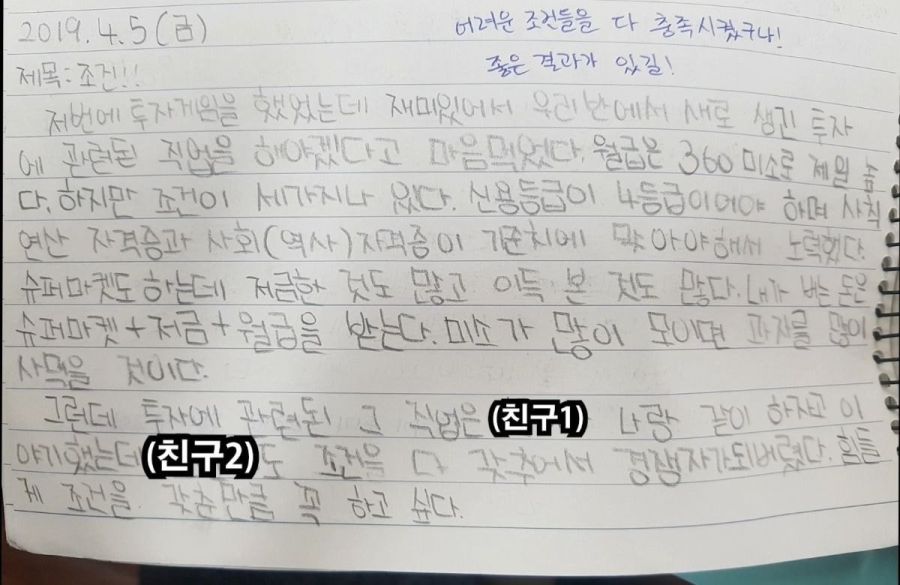 2019.4.5(금)
어려운 조건들을 다 충족시켰구나!
좋은 결과가 있길!
제목:조건!!
저번에 투자게임을 했었는데 재미있어서 우리반에서 새로 생긴 투자
에 관련된 직업을 해야겠다고 마음먹었다. 월급은 360미소로 제일 높
다. 하지만 조건이 세가지나 있다. 신용등급이 4등급이어야 하며 사칙
연산 자격증과 사회(역사)자격증이 기준치에 맞아야해서 노력했다.
슈퍼마켓도하는데 저금한 것도 많고 이득 본 것도 많다. 내가 버는 돈은
슈퍼마켓+저금+월급을 받는다. 미소가 많이 모이면 과자를 많이
사먹을 것이다.
그런데 투자에 관련된 그 직업은 (친구1) 나랑 같이 하자고 이
야기했는데 (친구2)도 조건을 다 갖추어서 경쟁자가되버렸다. 힘들
게 조건을 갖춘만큼 꼭 하고 싶다.